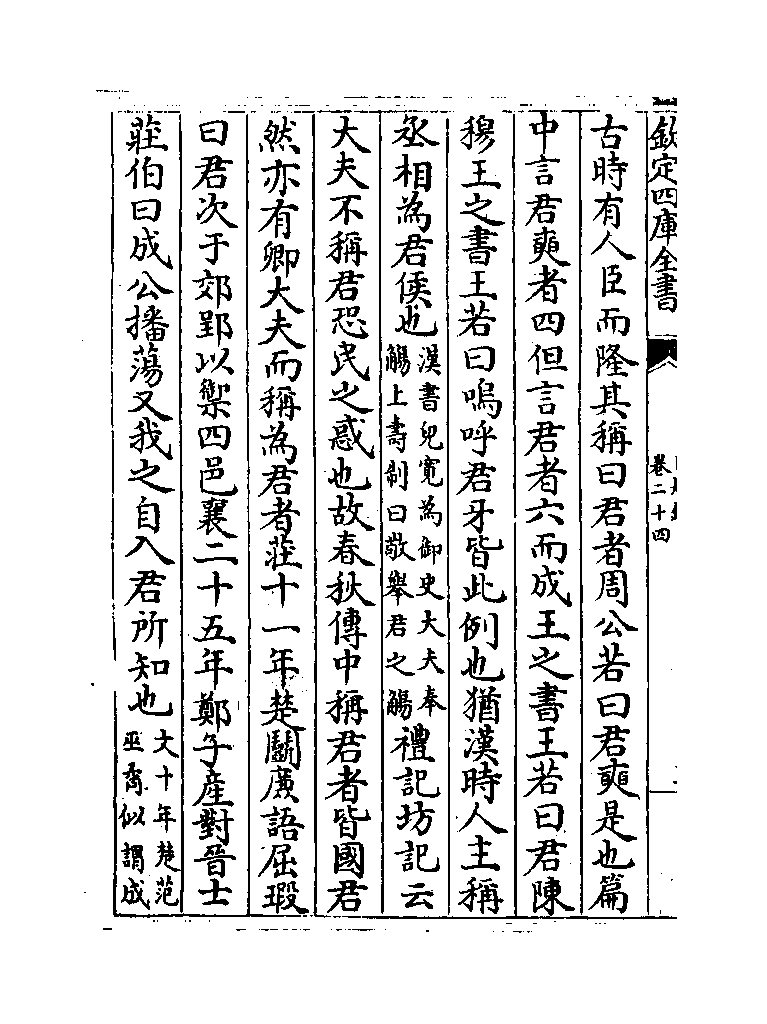 欽定四庫全書
卷二十四
古時有人臣而隆其稱曰君者周公若曰君奭是也篇
中言君奭者四但言君者六而成王之書王若曰君陳
穆王之書王若曰嗚呼君牙皆此例也猶漢時人主稱
丞相為君侯也漢書兒寛為御史大夫奉觴上壽制曰敬舉君之觴禮記坊記云
大夫不稱君恐民之惑也故春秋傳中稱君者皆國君
然亦有卿大夫而稱為君者莊十一年楚鬭廉語屈瑕
曰君次于郊郢以禦四邑襄二十五年鄭子産對晉士
莊伯曰成公播蕩又我之自入君所知也文十年楚范巫矞似謂成